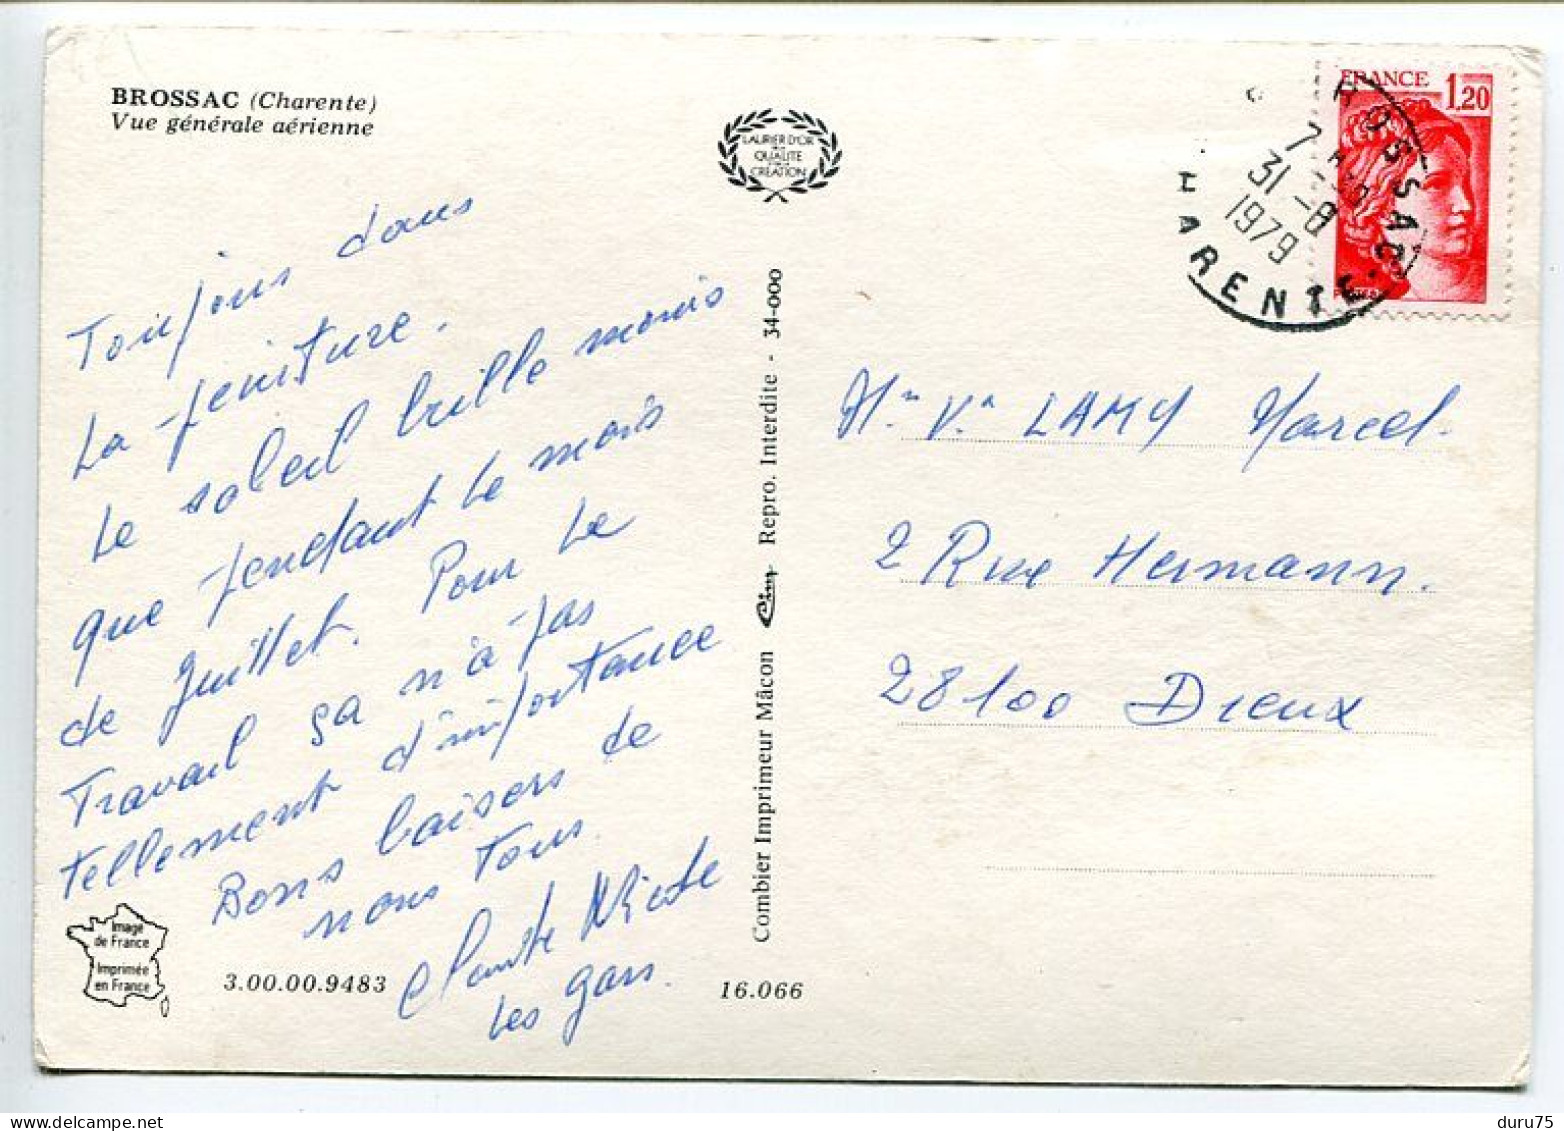 BROSSAC (Charente)
Vue générale aérienne
LAURIER D'OR
DE LA
QUALITE
CREATION
FRANCE 1,20
BROSSAC
7 H
31 -8
1979
CHARENTE
Toujours dans
la peniture.
Le soleil brille moins
que pendant le mois
de Juillet. Pour le
travail ça n'a pas
tellement d'importance
Bons baisers de
nous tous.
Claude Nicole
les gars.
Image
de France
Imprimée
en France
3.00.00.9483
16.066
Combier Imprimeur Mâcon Cim Repro. Interdite - 34-000
Mr Vr LAMY Marcel.
2 Rue Hermann.
28100 Dreux
duru75